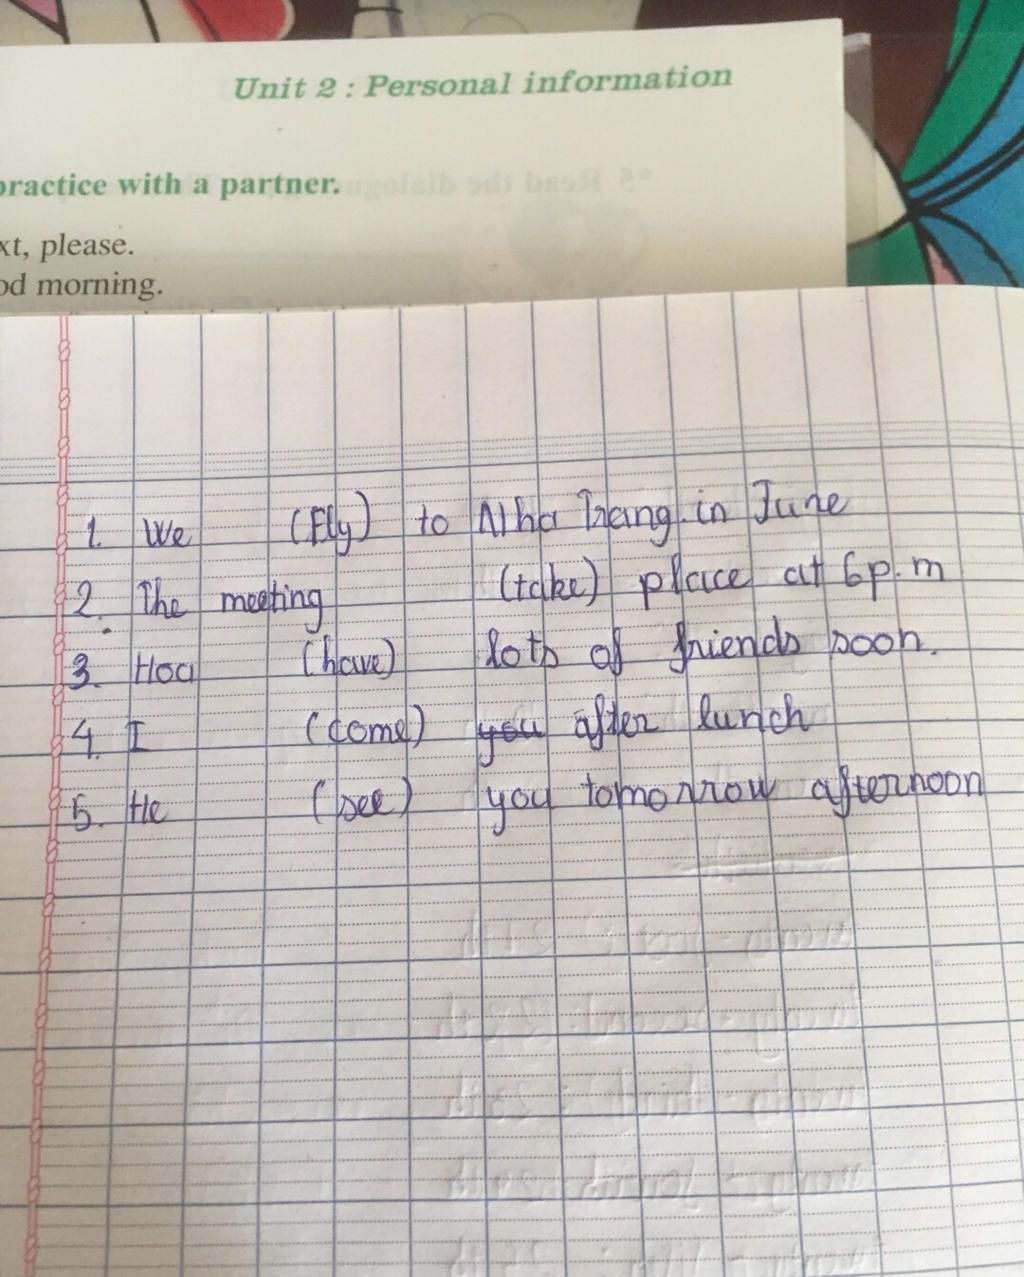 Unit 2 : Personal information
practice with a partner.
xt, please.
od morning.
1. We (Fly) to Nha Trang in June
2. The meeting (take) place at 6p.m
3. Hoa (have) lots of friends soon.
4. I (come) you after lunch
5. He (see) you tomorrow afternoon